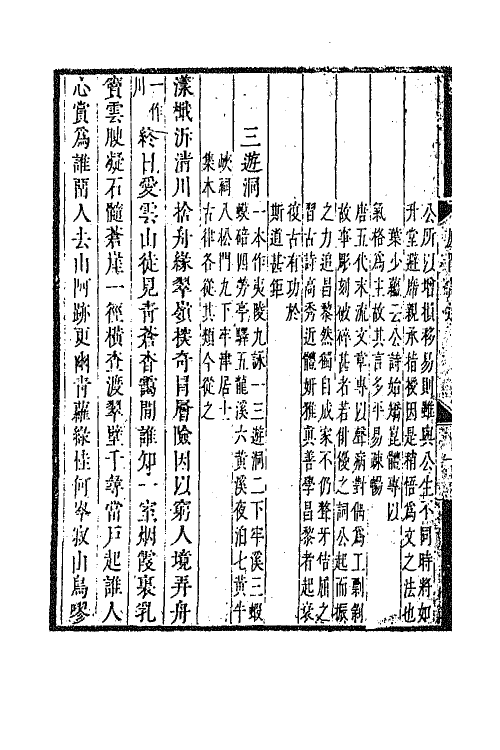 公所以增損移易則雖與公生不同時將如
升堂避席親承指授因是稍悟為文之法也
葉少蘊云公詩始矯崑體專以
氣格為主故其言多平易疎暢
唐五代末流文章專以聲病對偶為工剽剝
故事彫刻破碎甚者若俳優之詞公起而振
之力追昌黎然獨自成家不仍聱牙佶屈之
習古詩高秀近體妍雅真善學昌黎者起衰
復古有功於
斯道甚鉅
三遊洞
一本作夷陵九詠一三遊洞二下牢溪三蝦
蟆碚四勞亭驛五龍溪六黃溪夜泊七黃牛
峽祠八松門九下牢津居士
集本古律各從其類今從之
漾檝泝清川捨舟緣翠嶺探奇冒層險因以窮人境弄舟
一作川終日愛雲山徒見青蒼杳靄間誰知一室烟霞裏乳
竇雲腴凝石髓蒼崖一徑橫查渡翠壁千尋當戶起誰人
心賞為誰留人去山阿跡更幽青蘿綠桂何岑寂山鳥嘐